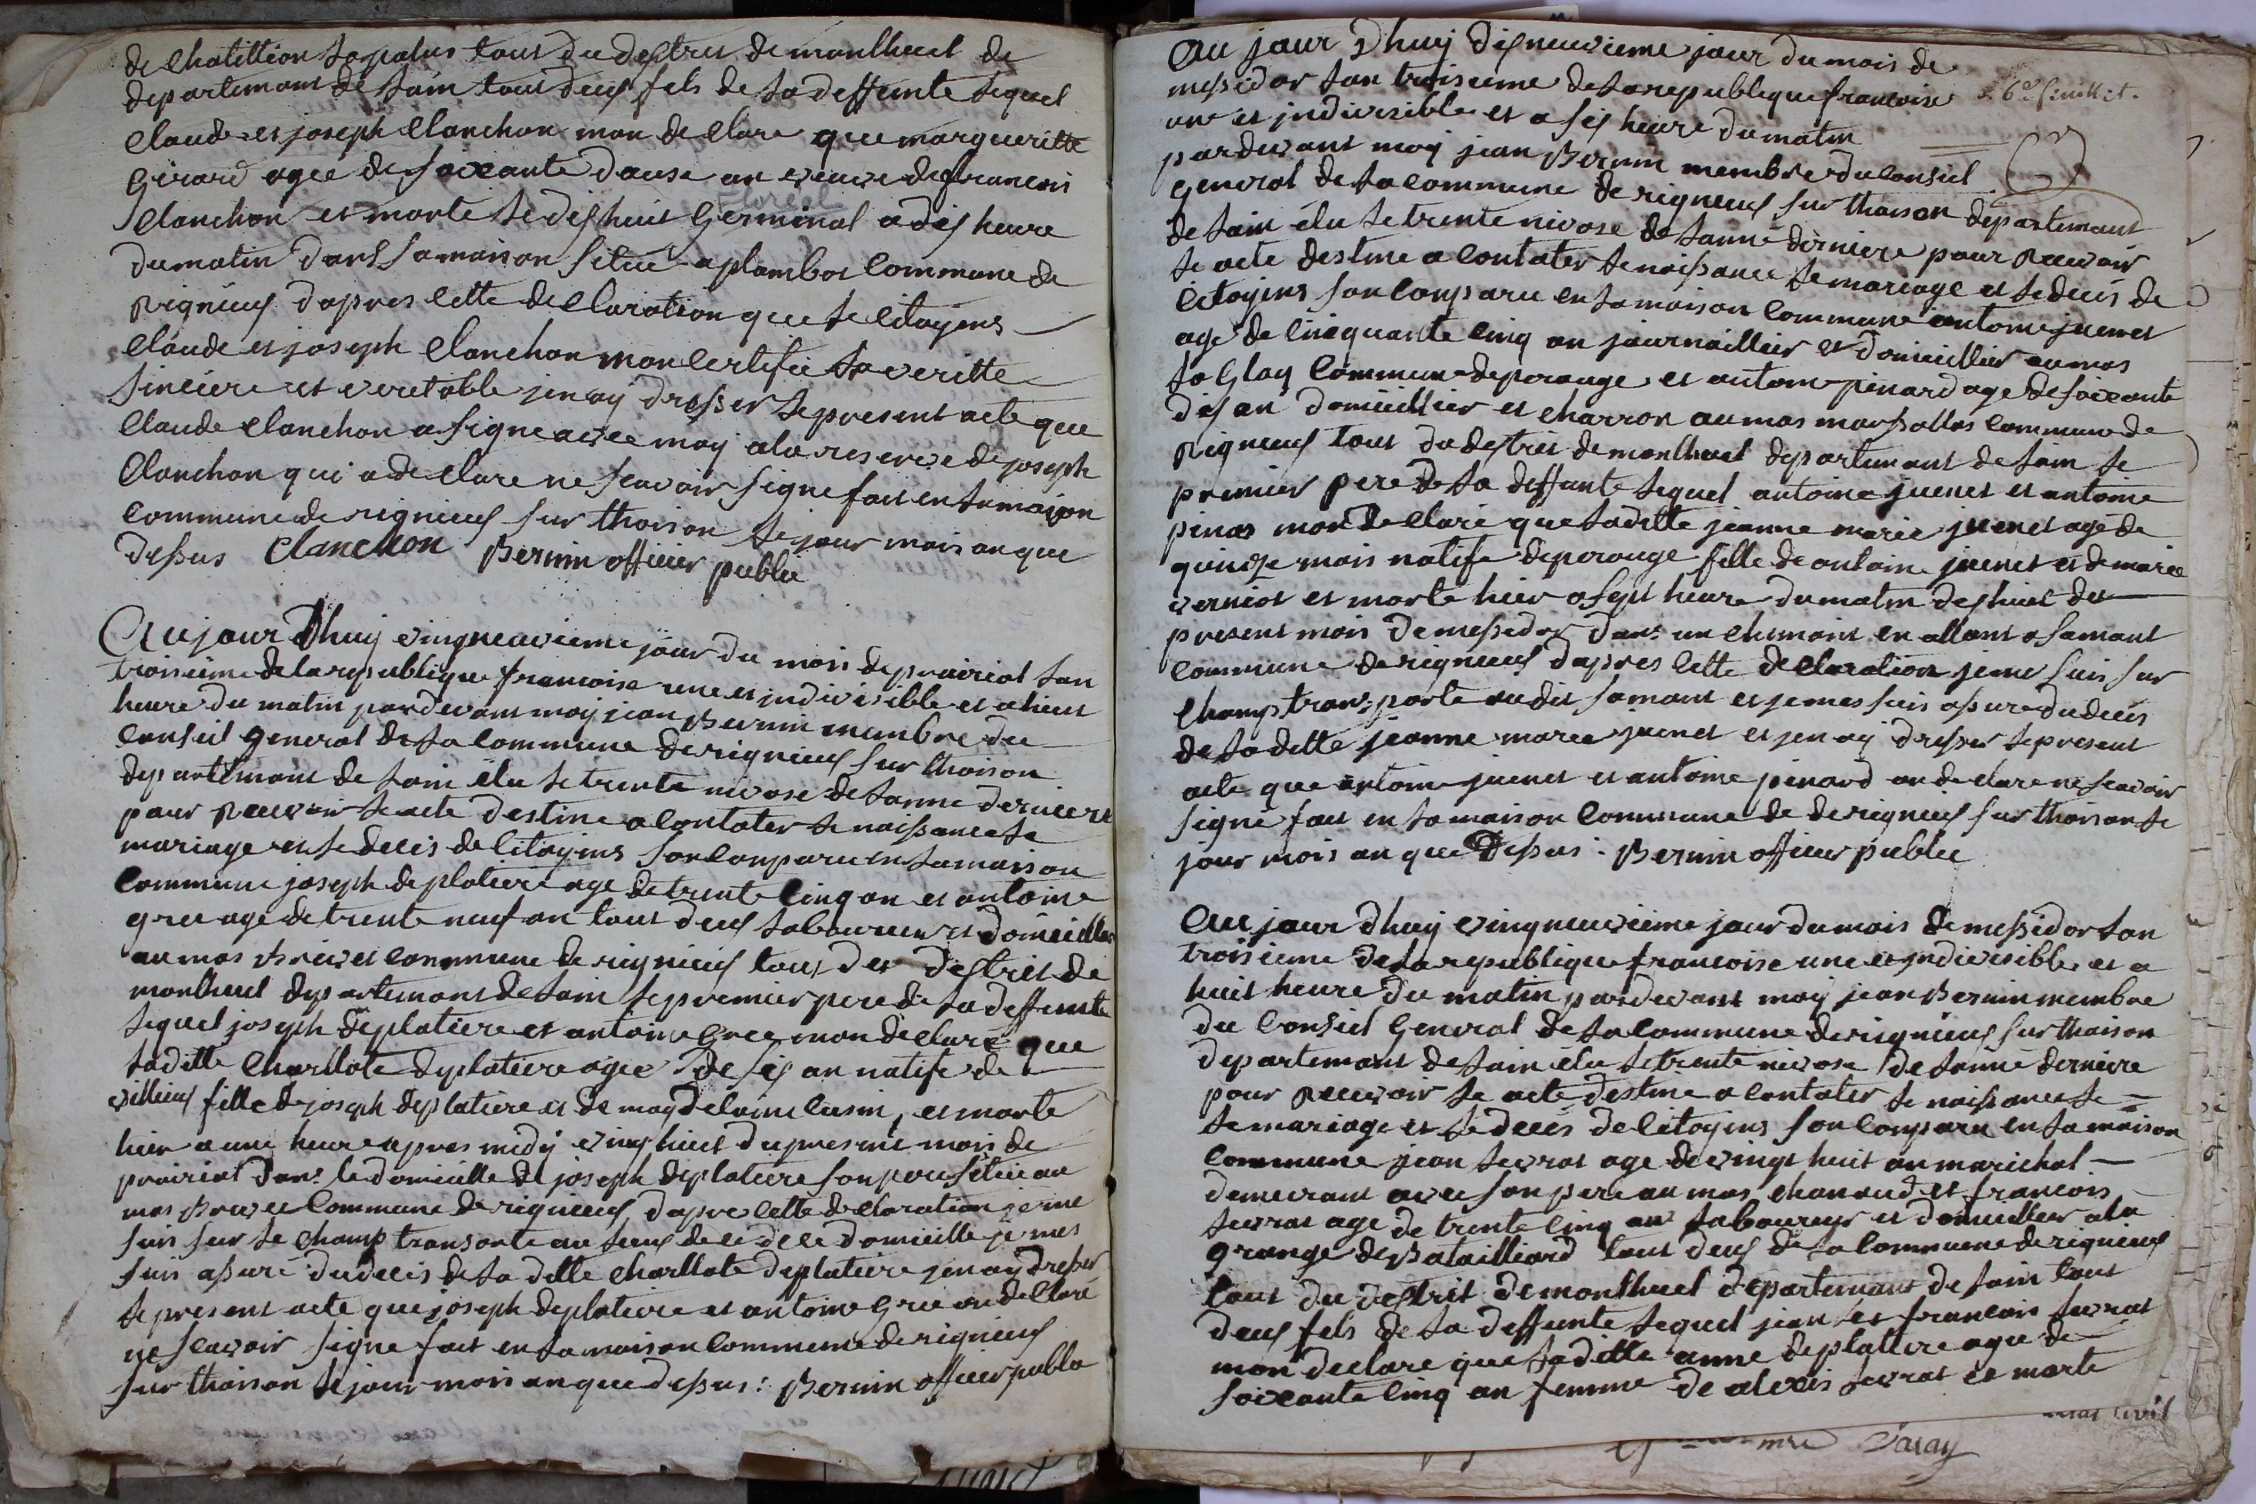 de Chatillion la palus tous du destrict de montluel de
departemant de lain tout deuf fils de la deffunte lequel
Claude et joseph Clanchon mon de Clare que margueritte
Girard agee de soixante douse an veuve de francois
Clanchon et morte le dishuit Germinal a dis heure
floreal
du matin dans sa maison situé a plambos Commune de
Rignieus d'apres cette declaration que le Citoyens
Claude et joseph Clanchon mon certifie la veritte
sinciere et veretable jen ay dresser le present acte que
Claude Clanchon a signe avec moy ala reserve de joseph
Clanchon qui a de clare ne scavoir signe fait en la maison
Commune de rignieus sur thoison le jour mois an que
dessus Clanchon Bernin officier public
Au jour d'huy vingneuvieme jour du mois de prairial lan
troisieme de la republique francoise une et indivisible et a huit
heure du matin pardevant moy jean Bernin membre du
Conseil general de la Commune de rignieus sur thoison
departemant de lain élu le trente nivose de lanne derniere
pour Recevoir le acte destine a Contater le naissance le
mariage et le decis de Citoyens son Conparu en la maison
Commune joseph deplatiere age de trente Cinq an et antoine
grec age de trente neuf an tout deuf laboureur et domicillier
au mas Brevet Commune de rignieus tout des destrict de
montluel departemant de lain le premier pere de la deffunte
lequel joseph deplatiere et antoine Grec mon de clare que
la ditte Charllote deplatiere agee de sis an natife de
villieus fille de joseph deplatiere et de magdelaine Cusin, et morte
hier a une heure apres midy vingthuit du present mois de
prairial dans le domicille de joseph deplatiere son pere situé au
mas Brevet Commune de rignieus d'apres cette declaration je me
suis sur le champ transporte au lieus de ce dit domicille je mes
suis assuré du decis de la ditte Charllote deplatiere jen ay dresser
le present acte que joseph deplatiere et antoine Grec on de Claré
ne scavoir signe fait en la maison Commune de rignieus
sur thoison le jour mois an que dessus : Bernin officier public
Au jour d'huy disneuvieme jour du mois de
messidor lan troisieme de la republique francoise
une et jndivisible et a sis heure du matin
6e feuillet.
pardevant moy jean Bernin membre du Conseil
General de la Commune de rignieus sur thoison departemant
de lain élu le trente nivose de lanne derniere pour Recevoir
le acte destine a Contater le naissance le mariage et le decis de
Citoyens son Conparu en la maison Commune antoine juenet
age de Cinquante Cinq an journaillier et domicillier au mas
la Glay Commune de perouge et antoine pinard age de soixante
dis an domicillier et charron au mas marssollas Commune de
Rignieus tout du destrict de montluel departemant de lain le
premier pere de la deffunte lequel antoine juenet et antoine
pinar mon de Claré que la ditte jeanne marie juenet agé de
quinze mois natife de perouge fille de antoine juenet et de marie
verniot et morte hier a sept heure du matin dishuit du
present mois de messidor dans un chemaint en allant a samant
Commune de rignieus d'apres cette declaration je me suis sur
champ transporte audit samant et je mes suis assure du decis
de la ditte jeanne marie juenet et jen ay dresser le present
acte que antoine juenet et antoine pinard on de clare ne scavoir
signe fait en la maison Commune de de rignieus sur thoison le
jour mois an que dessus : Bernin officier public
Au jour d'huy vingneuvieme jour du mois de messidor lan
troisieme de la republique francoise une et jndivisible et a
huit heure du matin pardevant moy jean Bernin membre
du Conseil General de la Commune de rignieus sur thoison
departemant de lain élu le trente nivose de lanne derniere
pour Recevoir le acte destine a Contater le naissance le
le mariage et le decés de Citoyens son Conparu en la maison
Commune jean levrat age de vingt huit an marichal
demeurant avec son pere au mas chanaud et francois
levrat age de trente Cinq an laboureur et domicillier ala
grange de Batailliard tout deuf de la Commune de rignieus
tout du destrict de montluel departemant de lain tout
deuf fils de la deffunte lequel jean et francois levrat
mon declare que la ditte anne deplatiere agee de
soixante Cinq an femme de alexis levrat et morte